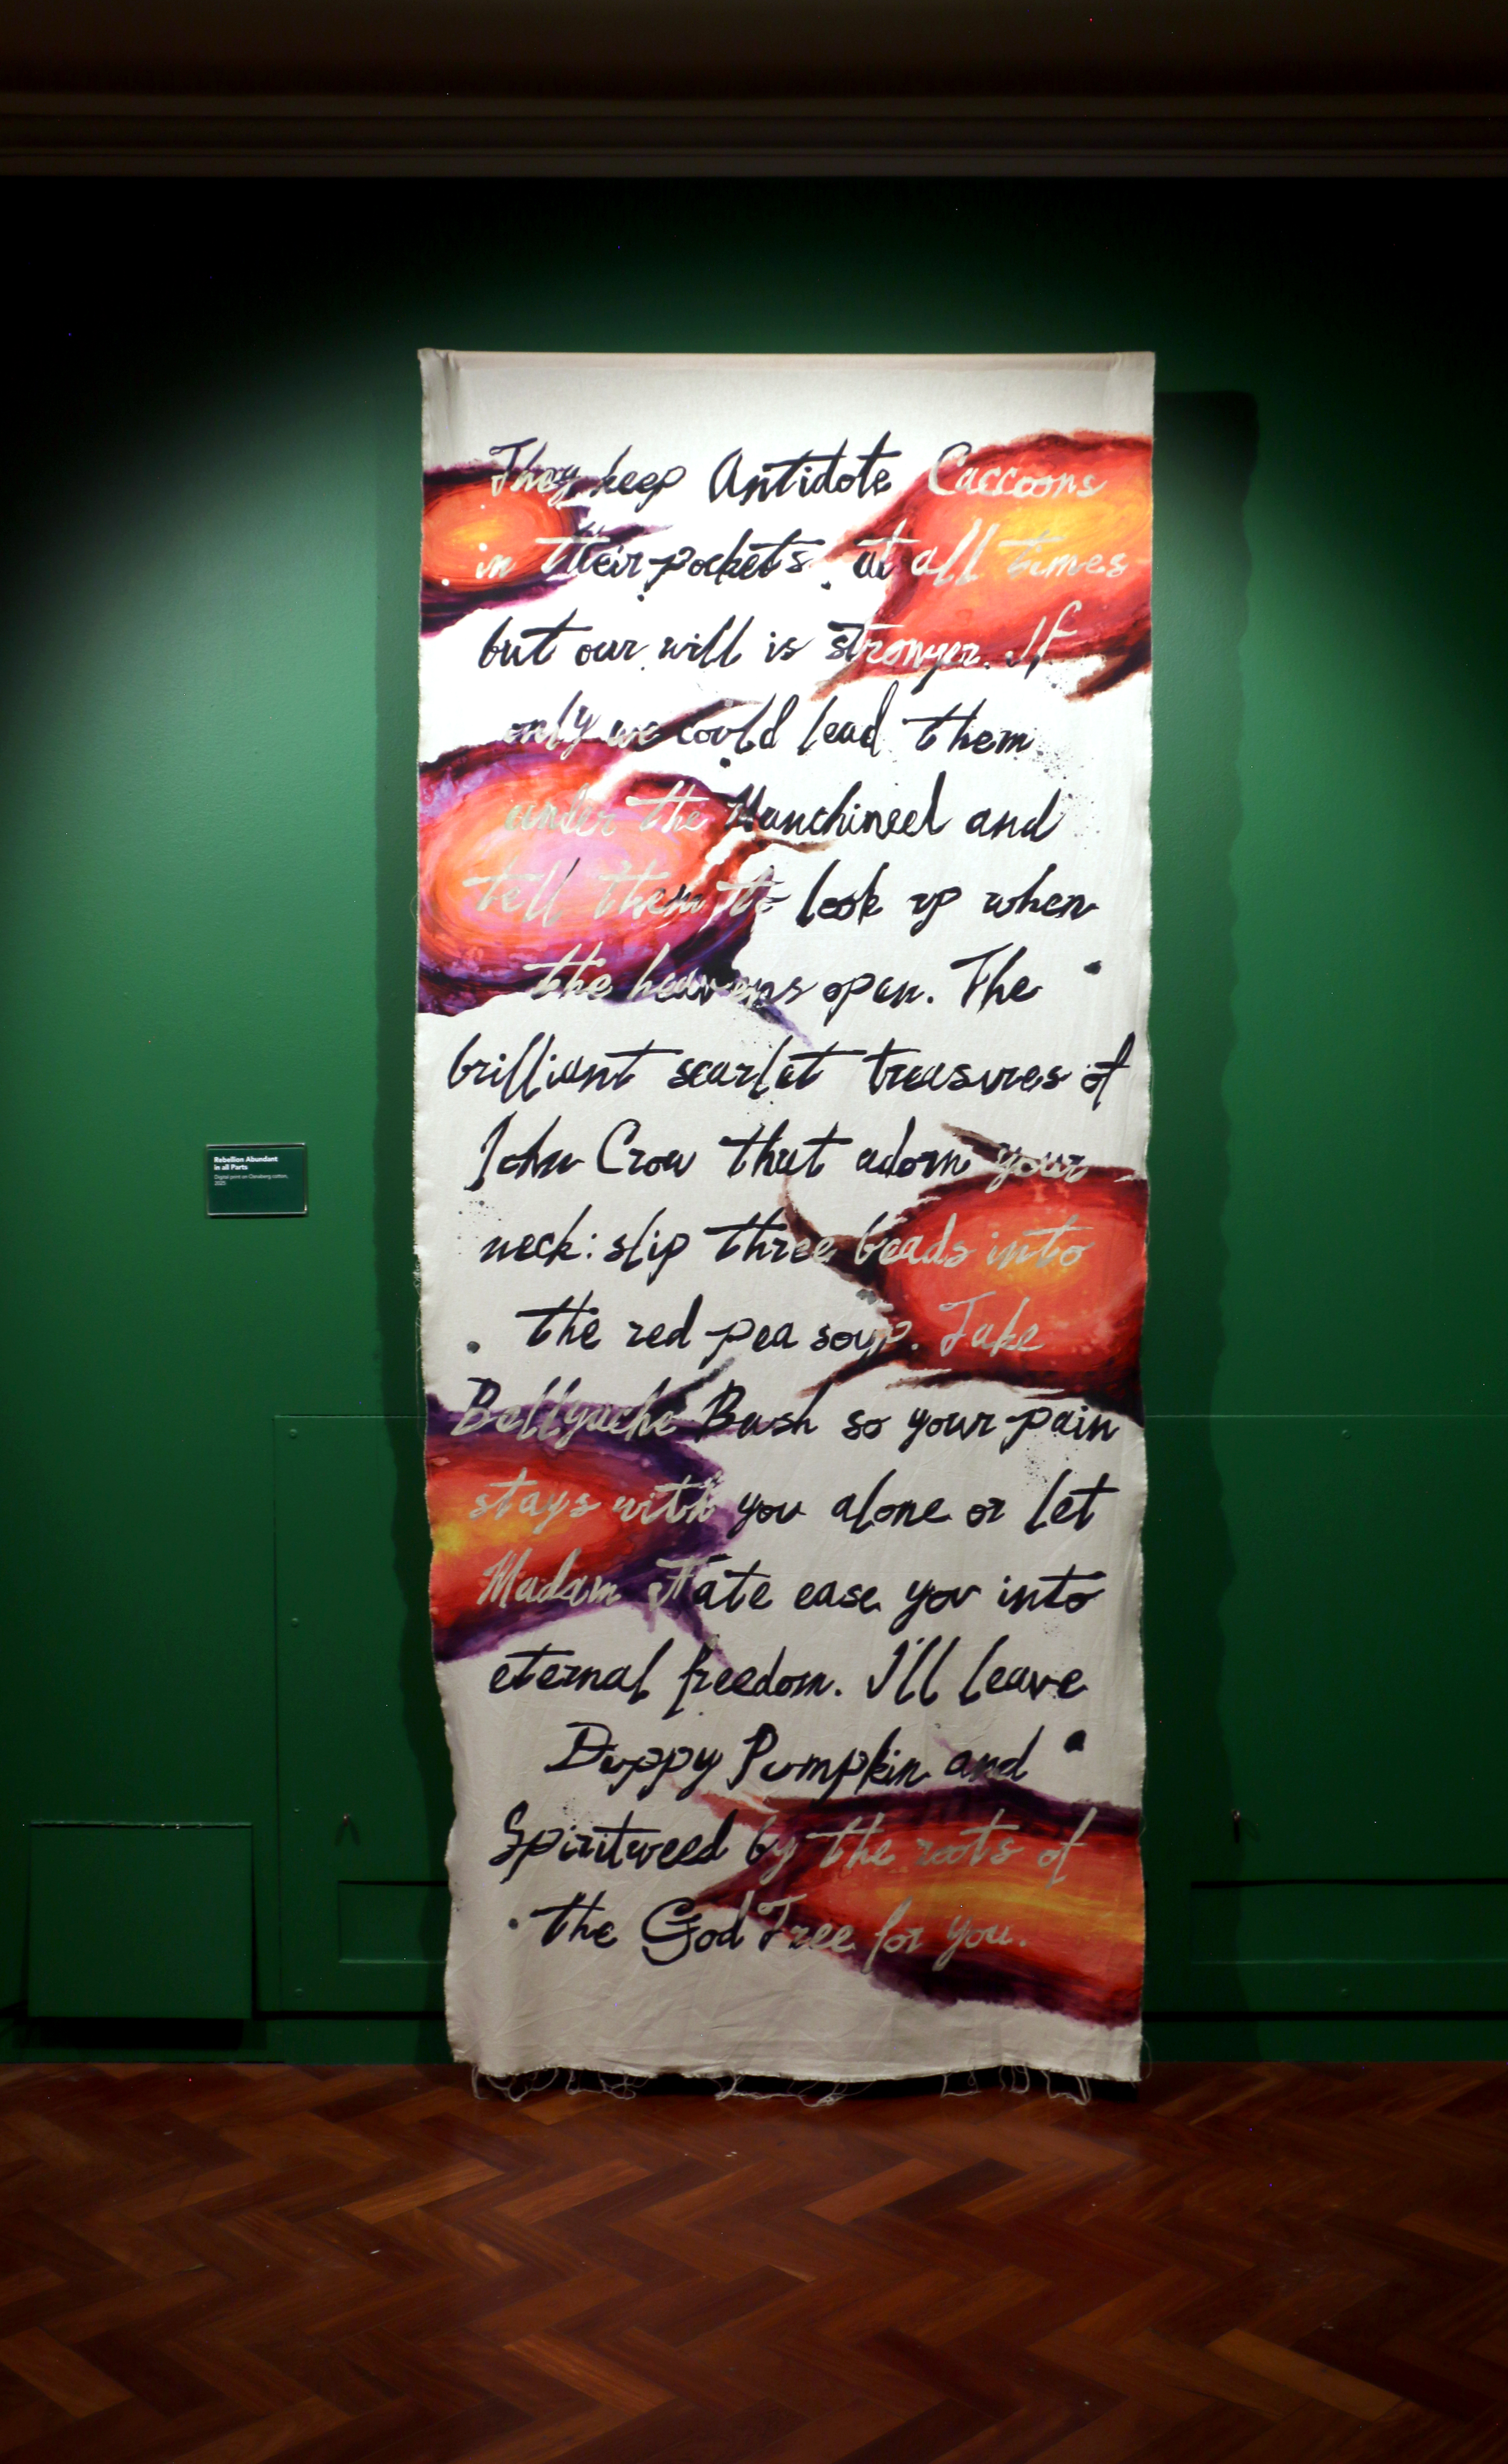 They keep Antidote Caccoons
in their pockets at all times
but our will is stronger. If
only we could lead them
under the Manchineel and
tell them to look up when
the heavens open. The
brilliant scarlet treasures of
John Crow that adorn your
neck: slip three beads into
the red pea soup. Take
Bellyache Bush so your pain
stays with you alone or let
Madam Fate ease you into
eternal freedom. I'll leave
Duppy Pumpkin and
Spiritweed by the roots of
the God Tree for you.
Rebellion Abundant
in all Parts
Digital print on Clensberg cotton,
2025